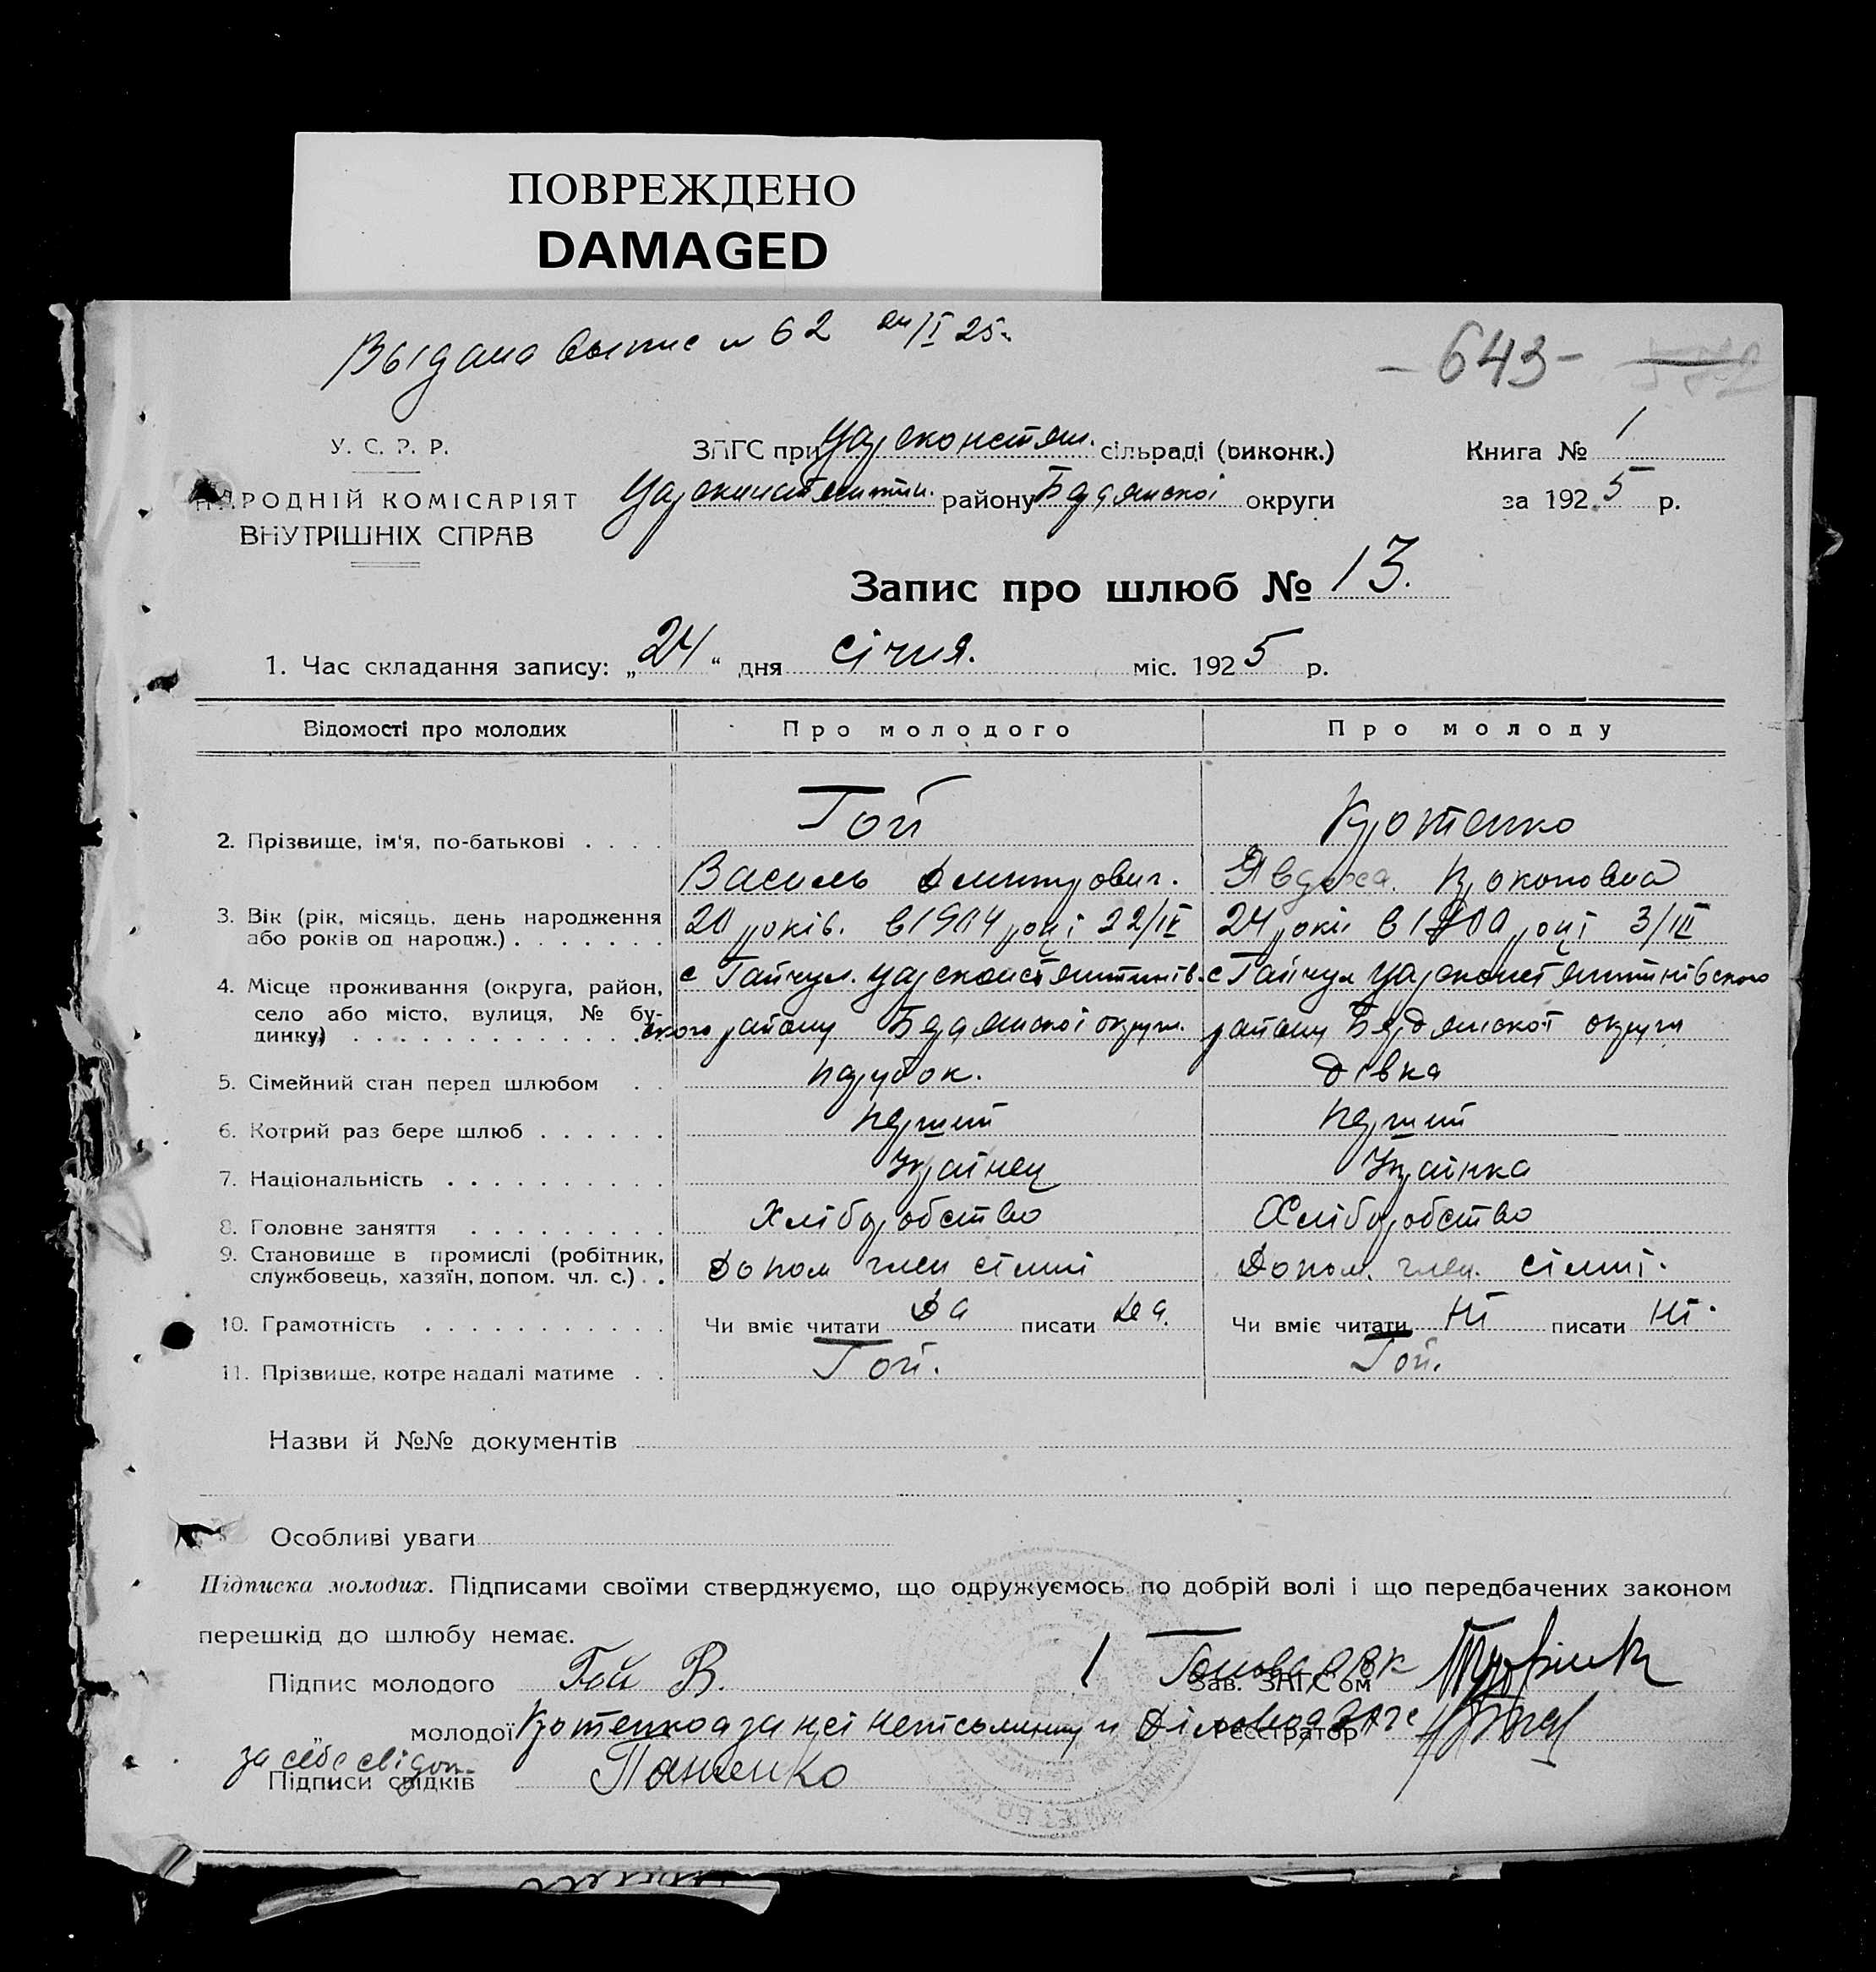 ПОВРЕЖДЕНО
DAMAGED
Выдана выпис н 62 24/I 25г.
- 643 -
У. С. Р. Р.
НАРОДНІЙ КОМІСАРІЯТ
ВНУТРІШНІХ СПРАВ
ЗАГС при Цареконстян. сільраді (виконк.)
Царекинстянтин. району Бердянскої округи
Книга № 1
за 1925 р.
Запис про шлюб № 13.
1. Час складання запису: „24“ дня січня. міс. 1925 р.
Відомості про молодих Про молодого Про молоду
2. Прізвище, ім'я, по-батькові . . . . Гой Кротенко
Василь Дмитрович. Явдоха Прокоповна
3. Вік (рік, місяць, день народження або років од народж.) . . . . . . . 20 років. в 1904 році 22/IV 24 роки в 1900 році 3/III
4. Місце проживання (округа, район, село або місто, вулиця, № будинку) . . . с Гайчул. Царсконстянтинів- с Гайчул Царсконстянтинівского
ского району Бердянскої округи. району Бердянскої округи
5. Сімейний стан перед шлюбом . . парубок. дівка
6. Котрий раз бере шлюб . . . . . . перший перший
7. Національність . . . . . . . . . . Українец Українка
8. Головне заняття . . . . . . . . . Хліборобство Хліборобство
9. Становище в промислі (робітник, службовець, хазяїн, допом. чл. с.) . . Допом член сімиі Допом. член. сімиі.
10. Грамотність . . . . . . . . . . . Чи вміє читати Да писати Да. Чи вміє читати Ні писати Ні.
11. Прізвище, котре надалі матиме . . Гой. Гой.
Назви й №№ документів
Особливі уваги
Підписка молодих. Підписами своїми стверджуємо, що одружуємось по добрій волі і що передбачених законом
перешкід до шлюбу немає.
Підпис молодого Гой В. Голова РВК
Зав. ЗАГС'ом
молодої Кротенкова за неї неписьменну и Діловод
Реєстратор
за себе свідок
Підписи свідків Панченко